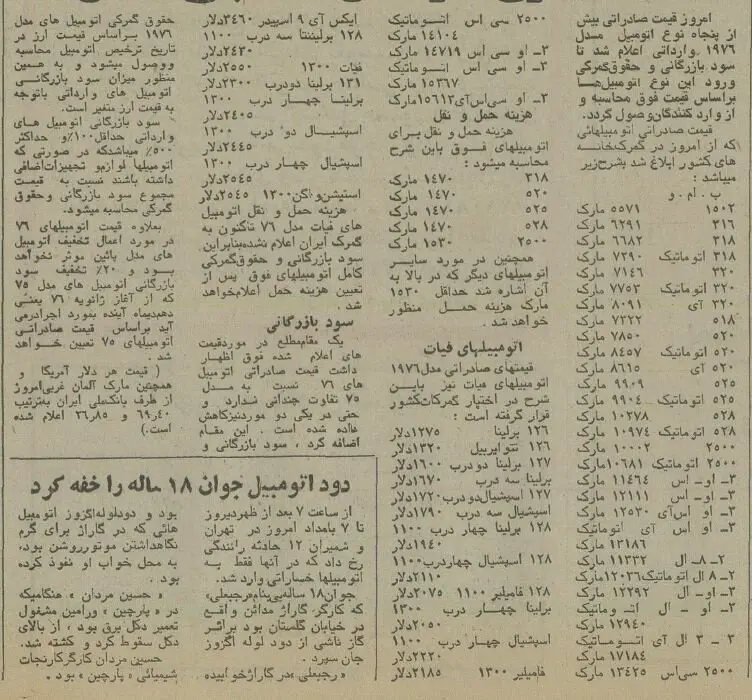 امروز قیمت صادراتی بیش
از پنجاه نوع اتومبیل مدل
۱۹۷۶ وارداتی اعلام شد تا
سود بازرگانی و حقوق‌گمرکی
ورود این نوع اتومبیل‌ها
براساس قیمت فوق محاسبه و
از واردکنندگان وصول گردد.
قیمت صادراتی اتومبیلهائی
که از امروز در گمرکخانه
های کشور ابلاغ شد بشرح‌زیر
میباشد :
ب . ام . و
۱۵۰۲ ۵۵۷۱ مارک
۳۱۶ ۶۲۹۱ مارک
۳۱۸ ۶۶۸۲ مارک
۳۱۸ اتوماتیک ۷۲۹۰ مارک
۳۲۰ ۷۱۴۶ مارک
۳۲۰ اتوماتیک ۷۷۵۳ مارک
۳۲۰ آی ۸۰۹۱ مارک
۵۱۸ ۷۳۲۲ مارک
۵۲۰ ۷۸۵۰ مارک
۵۲۰ اتوماتیک ۸۴۵۷ مارک
۵۲۰ آی ۸۶۱۵ مارک
۵۲۵ ۹۹۰۹ مارک
۵۲۵ اتوماتیک ۹۹۰۴ مارک
۵۲۸ ۱۰۲۷۸ مارک
۵۲۸ اتوماتیک ۱۰۹۷۴ مارک
۲۵۰۰ ۱۰۰۰۲ مارک
۲۵۰۰ اتوماتیک ۱۰۶۸۱ مارک
۳ـ او ـ اس ۱۱۴۶۴ مارک
۳ـ او ـ اس ۱۲۱۱۱ مارک
۳ـ او اس‌آی ۱۲۵۳۰ مارک
۳ـ او اس آی اتوماتیک
۱۳۱۸۶ مارک
۲ـ ۸ـ ال ۱۱۳۳۲ مارک
۲ـ ۸ ال اتوماتیک ۱۲۰۳۶مارک
۳ـ او ـ ال ۱۲۲۹۲ مارک
۳ـ او ـ ال اتـوماتیک
۱۲۹۴۰ مارک
۳ ـ ۳ ال آی اتـوماتیک
۱۷۱۸۴ مارک
۲۵۰۰ سی‌اس ۱۳۴۲۵ مارک
۲۵۰۰ سی اس اتـوماتیک
۱۴۱۰۴ مارک
۳ـ او سی اس ۱۴۷۱۹ مارک
۳ـ او سی اس اتـوماتیک
۱۵۳۶۷ مارک
۳ـ او سی‌اس‌آی۱۵۶۱۲مارک
هزینه حمل و نقل
هزینه حمل و نقل برای
اتومبیلهای فوق باین شرح
محاسبه میشود :
۳۱۸ ۱۴۷۰ مارک
۵۲۰ ۱۴۷۰ مارک
۵۲۵ ۱۴۷۰ مارک
۵۲۸ ۱۴۷۰ مارک
۲۵۰۰ ۱۵۳۰ مارک
همچنین در مورد سایر
اتومبیلهای دیگر که در بالا به
آن اشاره شد حداقل ۱۵۳۰
مارک هزینه حمل منظور
خواهد شد .
اتومبیلهای فیات
قیمتهای صادراتی مدل۱۹۷۶
اتومبیلهای فیات نیز باین
شرح در اختیار گمرکات‌کشور
قرار گرفته است :
۱۲۶ برلینا ۱۲۷۵دلار
۱۲۶ تتواپریبل ۱۳۲۰دلار
۱۲۷ برلینا دو درب ۱۶۰۰دلار
برلینا سه درب ۱۶۷۰دلار
۱۲۷ اسپشیال‌دو درب۱۷۲۰دلار
اسپشیال سه درب ۱۷۹۰دلار
۱۲۸ برلینا چهار درب ۱۱۰۰
۱۹۴۰دلار
۱۲۸ اسپشیال چهاردرب۱۱۰۰
۲۱۱۰دلار
۱۲۸ فامیلیر ۱۱۰۰ ۲۰۷۵دلار
برلینا چهـار درب ۱۳۰۰
۲۰۵۰دلار
اسپشیال چهـار درب ۱۱۰۰
۲۲۲۰دلار
فامیلیر ۱۳۰۰ ۲۱۸۵دلار
ایکس آی ۹ اسپیدر ۳۴۶۰دلار
۱۲۸ برلینتا سه درب ۱۱۰۰
۲۴۳۰دلار
فیات ۱۳۰۰ ۲۵۵۰دلار
۱۳۱ برلینا دودرب ۲۳۰۰دلار
برلینـا چهـار درب ۱۳۰۰
۲۴۰۵دلار
اسپشیـال دو درب ۱۳۰۰
۲۴۴۵دلار
اسپشیال چهـار درب ۱۳۰۰
۲۵۴۵دلار
استیشن‌واگن۱۳۰۰ ۲۵۴۵دلار
هزینه حمل و نقل اتومبیل
های فیات مدل ۷۶ تاکنون به
گمرک ایران اعلام نشده‌بنابراین
سود بازرگانی و حقوق‌گمرکی
کامل اتومبیلهای فوق پس از
تعیین هزینه حمل اعلام‌خواهد
شد .
سود بازرگانی
یک مقام‌مطلع در موردقیمت
های اعلام شده فوق اظهار
داشت قیمت صادراتی اتومبیل
های ۷۶ نسبت به مـدل
۷۵ تفاوت چندانی ندارد و
حتی در یکی دو موردنیزکاهش
داده شده است . این مقام
اضافه کرد ، سود بازرگانی و
حقوق گمرکی اتومبیل های مدل
۱۹۷۶ براساس قیمت ارز در
تاریخ ترخیص اتومبیل محاسبه
ووصول میشود و به همین
منظور میزان سود بازرگانـی
اتومبیل های وارداتی باتوجه
به قیمت ارز متغیر است.
سود بازرگانی اتومبیل های
وارداتی حداقل ۱۰۰٪ و حداکثر
۵۰۰٪ میباشدکه در صورتی که
اتومبیلها لوازم‌و تجهیزات‌اضافی
داشته باشند نسبت به قیمت
مجموع سود بازرگانی وحقوق
گمرکی محاسبه میشود.
بعلاوه قیمت اتومبیلهای ۷۶
در مورد اعمال تخفیف اتومبیل
های مدل پائین موثر نخواهد
بود و ۲۰٪ تخفیف سود
بازرگانی اتومبیل های مدل ۷۵
که از آغاز ژانویه ۷۶ یعنی
دهم‌دیماه آینده بمورد اجرادرمی
آید براساس قیمت صادراتی
اتومبیلهای ۷۵ تعیین خـواهد
شد .
( قیمت هر دلار آمریکا و
همچنین مارک آلمان غربی‌امروز
از طرف بانک‌ملی ایران بترتیب
۶۹ر۴۰ و ۲۶ر۸۵ اعلام شده
است.)
دود اتومبیل جوان ۱۸ ساله را خفه کرد
از ساعت ۷ بعد از ظهردیروز
تا ۷ بامداد امروز در تهران
و شمیران ۱۲ حادثه رانندگی
رخ داد که در آنها فقط به
اتومبیلها خساراتی وارد شد.
جوان۱۸ ساله‌یی‌بنام«رجبعلی»
که کارگر گاراژ مدائن واقـع
در خیابان گلستان بود براثر
گاز ناشی از دود لوله اگزوز
جان سپرد .
« رجبعلی »در گاراژخوابیده
بود و دودلوله‌اگزوز اتومبیل
هائی که در گاراژ برای گرم
نگاهداشتن موتورروشن بود،
به محل خواب او نفوذ کرده
بود .
« حسین مردان » هنگامیکه
در « پارچین » ورامین مشغول
تعمیر دکل برق بود ، از بالای
دکل سقوط کرد و کشته شد.
حسین مردان کارگرکارنجات
شیمیائی « پارچین » بود .